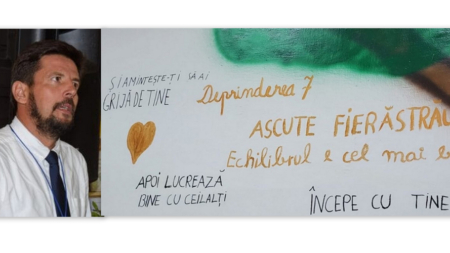 ȘI AMINTEȘTE-ȚI SĂ AI
GRIJĂ DE TINE
Deprinderea 7
ASCUTE FIERĂSTRĂU
Echilibrul e cel mai
APOI LUCREAZĂ
BINE CU CEILALȚI
ÎNCEPE CU TINE